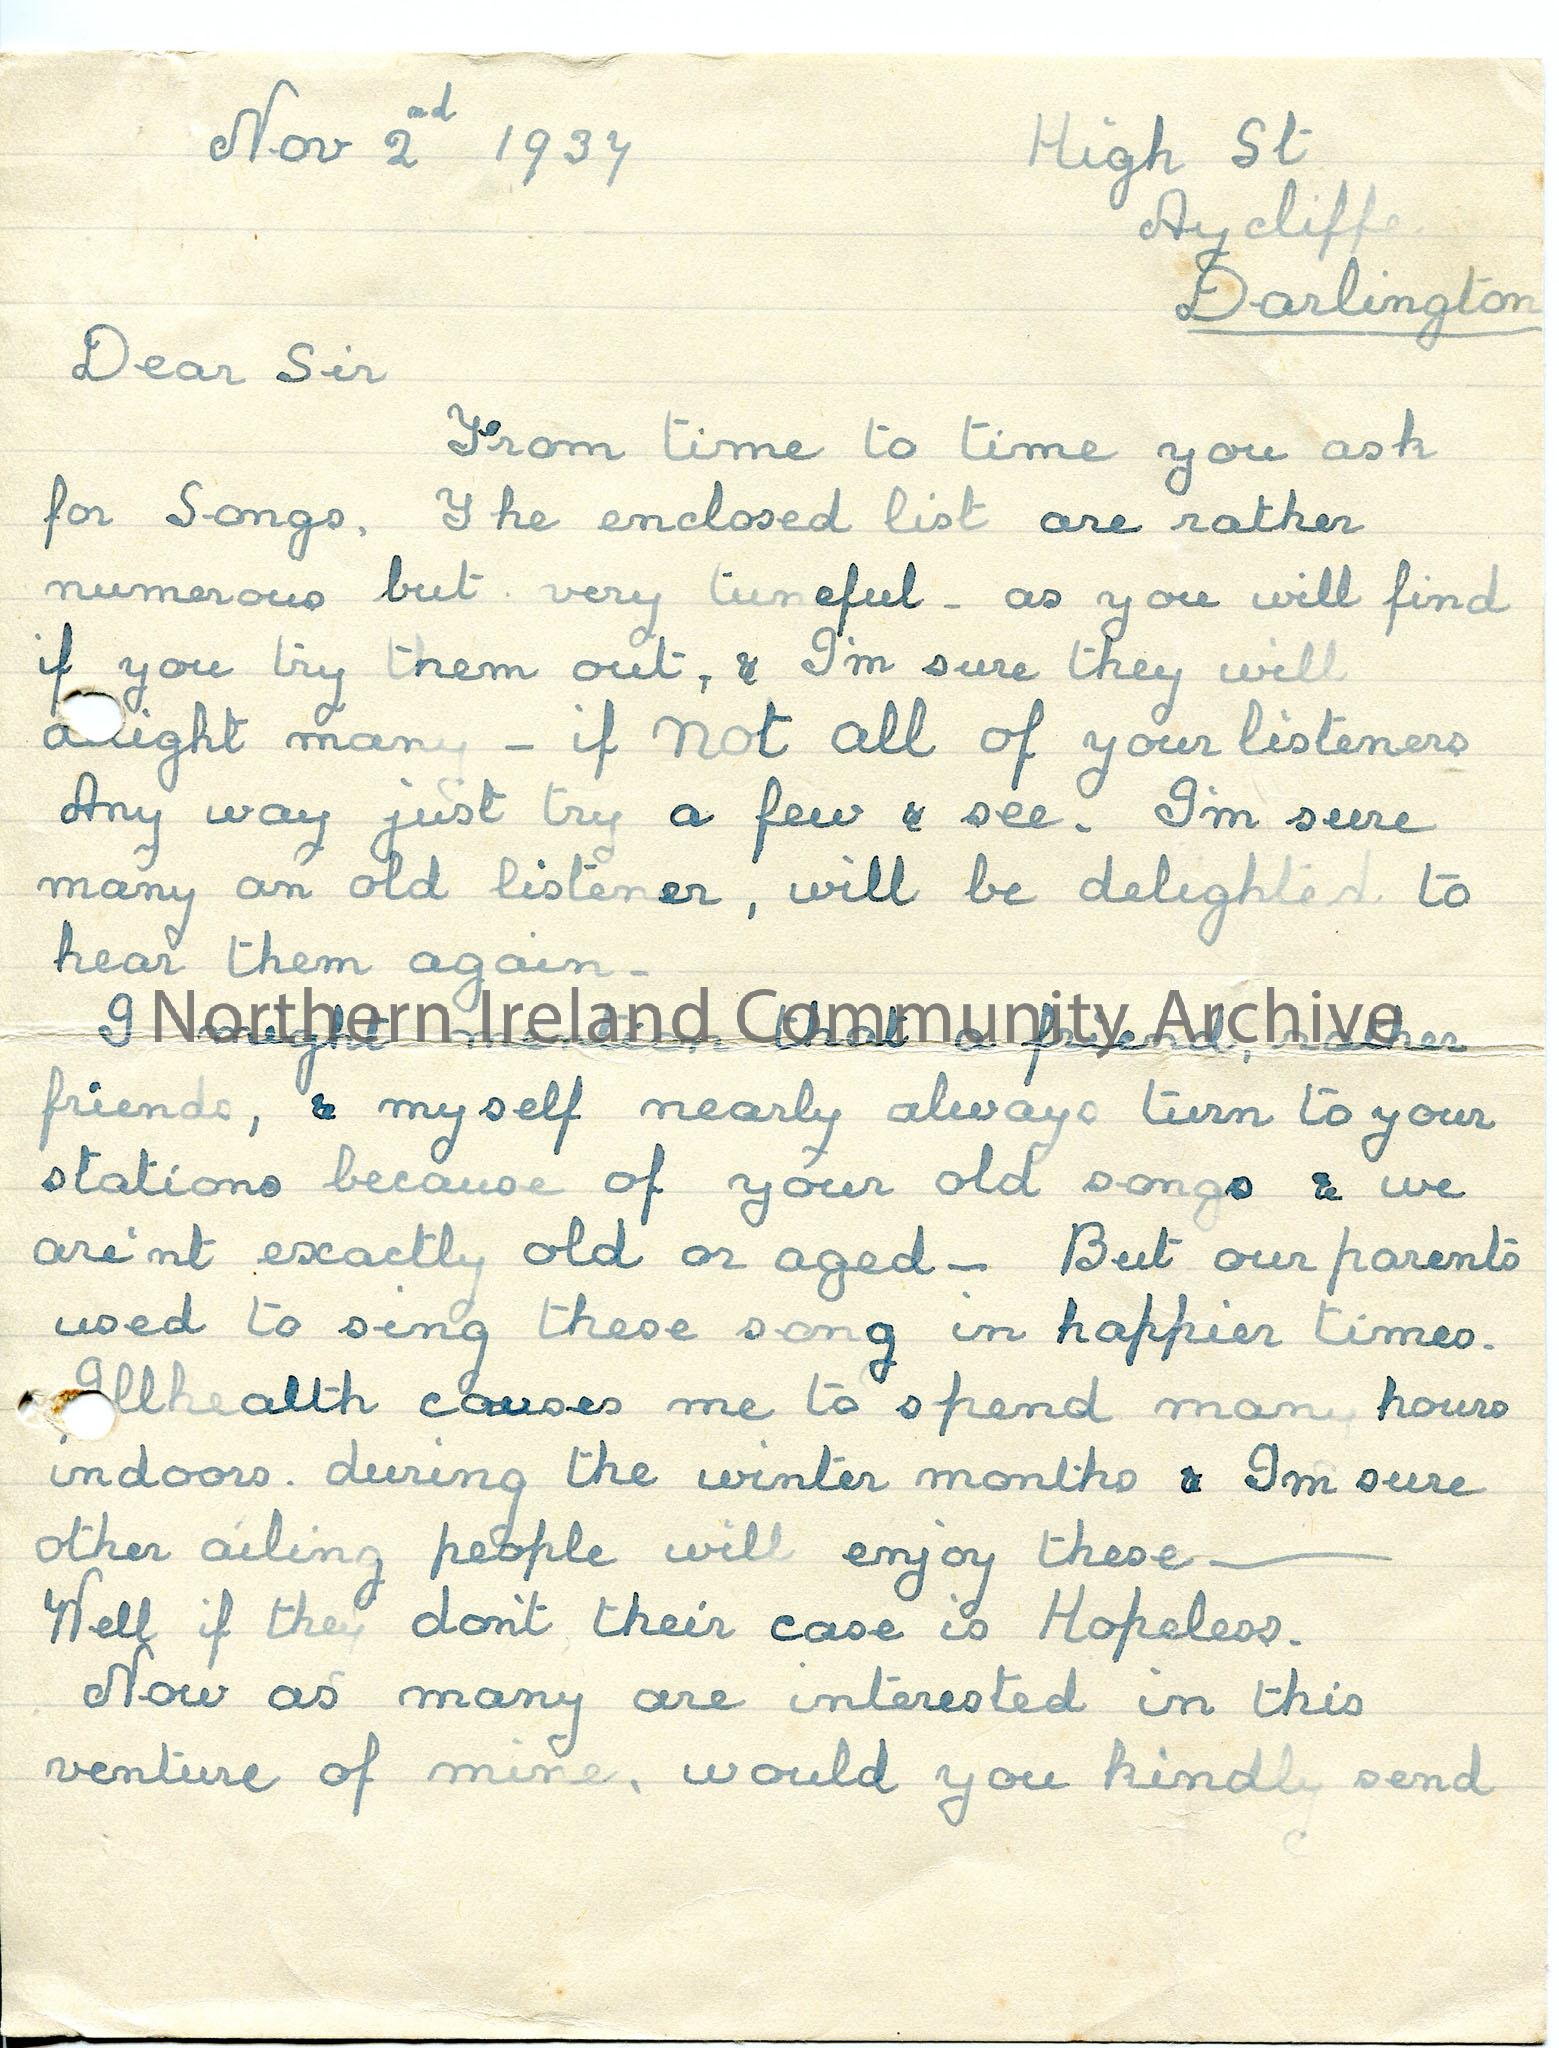 Nov 2nd 1937
High St
Aycliffe.
Darlington
Dear Sir
From time to time you ask
for Songs. The enclosed list are rather
numerous but very tuneful - as you will find
if you try them out, & I'm sure they will
many - if not all of your listeners
Any way just try a few & see. I'm sure
many an old listener, will be delighted to
hear them again -
I might mention that a friend, rather
Northern Ireland Community Archive
friends, & myself nearly always turn to your
stations because of your old songs & we
are'nt exactly old or aged - But our parents
used to sing these song in happier times.
Illhealth causes me to spend many hours
indoors. during the winter months & I'm sure
other ailing people will enjoy these —
Well if they don't their case is Hopeless.
Now as many are interested in this
venture of mine, would you kindly send